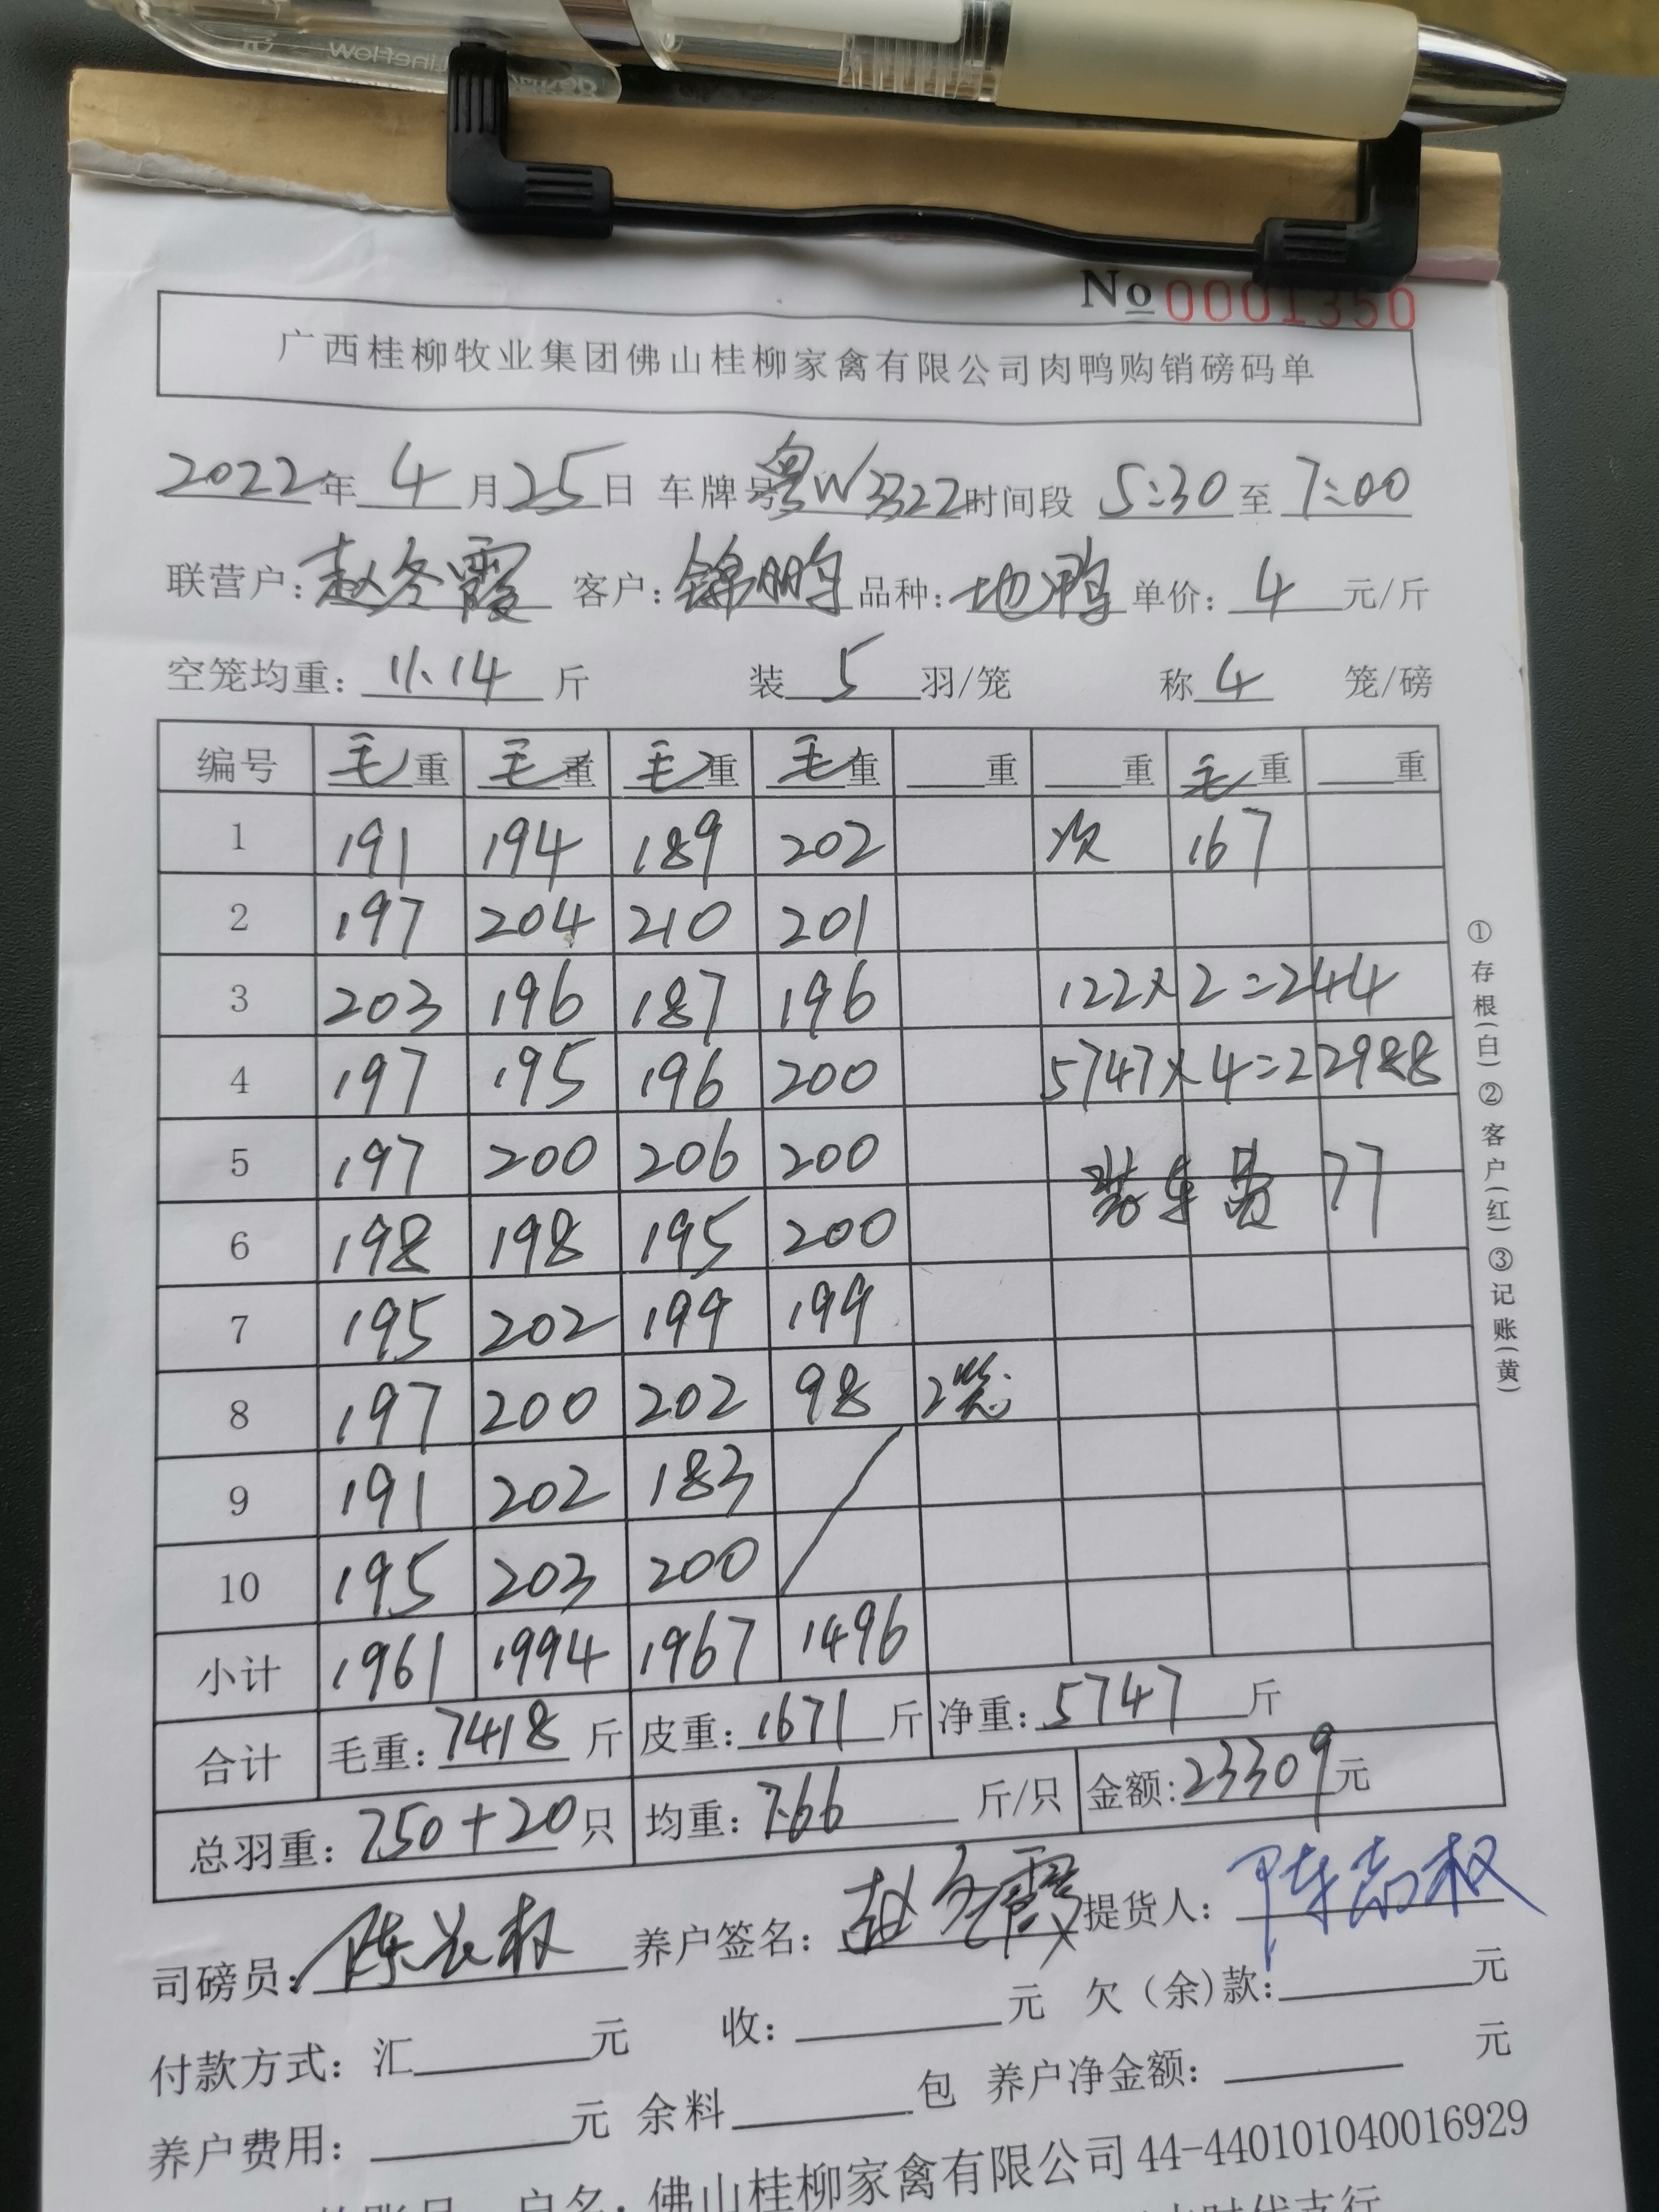 No 0001350
广西桂柳牧业集团佛山桂柳家禽有限公司肉鸭购销磅码单
2022年 4 月 25 日 车牌号 粤W3322 时间段 5:30 至 7:00
联营户: 赵冬霞 客户: 锦鹏 品种: 地鸭 单价: 4 元/斤
空笼均重: 11.14 斤 装 5 羽/笼 称 4 笼/磅
编号 毛重 毛重 毛重 毛重 重 重 毛重 重
1 191 194 189 202 次 167
2 197 204 210 201
3 203 196 187 196 122×2=244
4 197 195 196 200 5747×4=22988
5 197 200 206 200 装车费 77
6 198 198 195 200
7 195 202 199 199
8 197 200 202 98 2笼
9 191 202 183
10 195 203 200
小计 1961 1994 1967 1496
合计 毛重: 7418 斤 皮重: 1671 斤 净重: 5747 斤
总羽重: 750+20 只 均重: 7.66 斤/只 金额: 23309 元
司磅员: 陈 权 养户签名: 赵冬霞 提货人: 陈 权
付款方式: 汇 元 收: 元 欠(余)款: 元
养户费用: 元 余料 包 养户净金额: 元
户名: 佛山桂柳家禽有限公司 44-440101040016929
①存根(白)②客户(红)③记账(黄)